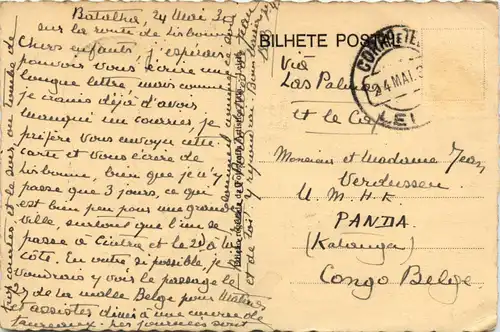 Batalha, 24 Mai 3
sur la route de Lisbonne
Chers enfants, j'espérais
pouvoir vous écrire une
longue lettre, mais comme
je crains déjà d'avoir
manqué un courrier, je
préfère vous envoyer cette
carte et vous écrire de
Lisbonne, bien que je n'y
passe que 3 jours, ce qui
est bien peu pour une grande
ville, surtout que l'un se
passe à Cintra et le 2d à
côté. En outre si possible, je
voudrais y voir le passage le
27 de la malle Belge pour Matadi
et assister dimé à une course de
taureaux. Les journées sont
trop courtes et le soir, on tombe de
BILHETE POSTAL
Via
Las Palmas
et le Cap
CORREIO E TEL
24 MAI
LEI
Monsieur et Madame Jean
Verdussen
U. M. H. K.
PANDA
(Katanga)
Congo Belge